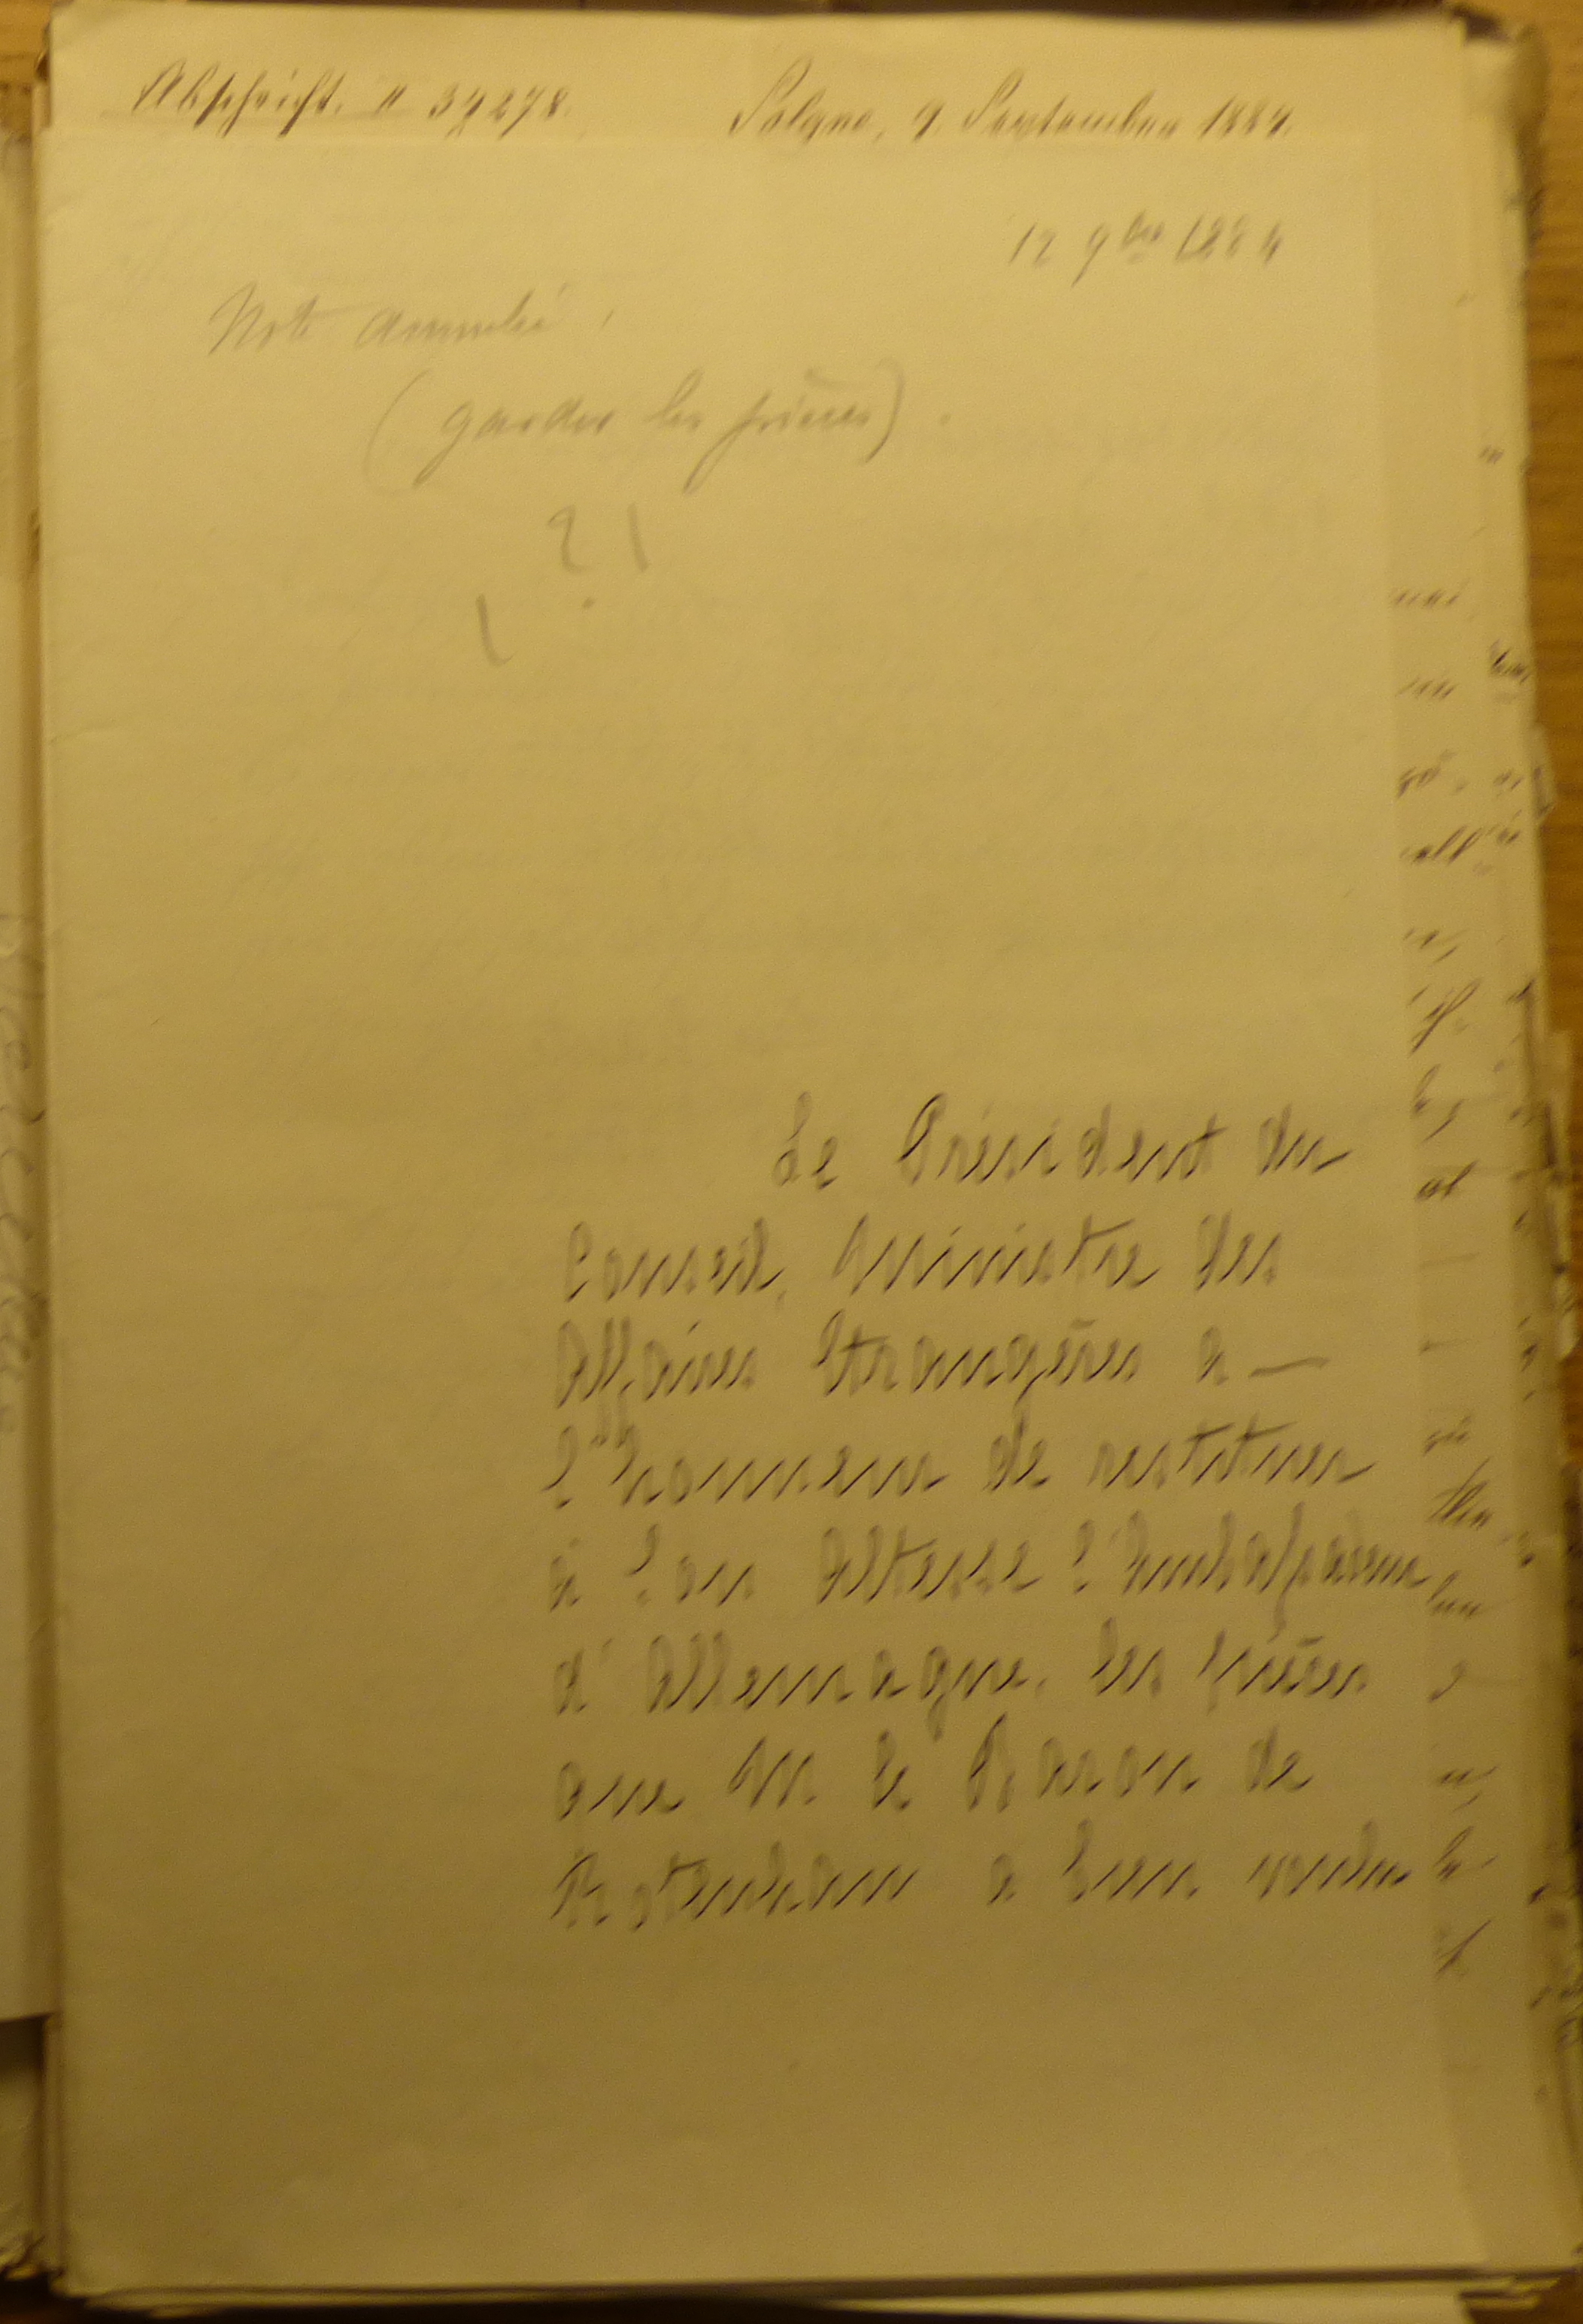 Abschrift. II 37278. Solgne, 9. September 1884.
12 9bre 1884
Note annulée,
(garder les pièces).
Le Président du
Conseil, Ministre des
Affaires Etrangères a
l'honneur de restituer
à Son Altesse l'Ambassadeur
d'Allemagne, les pièces
que M le Baron de
Rotenhan a bien voulu